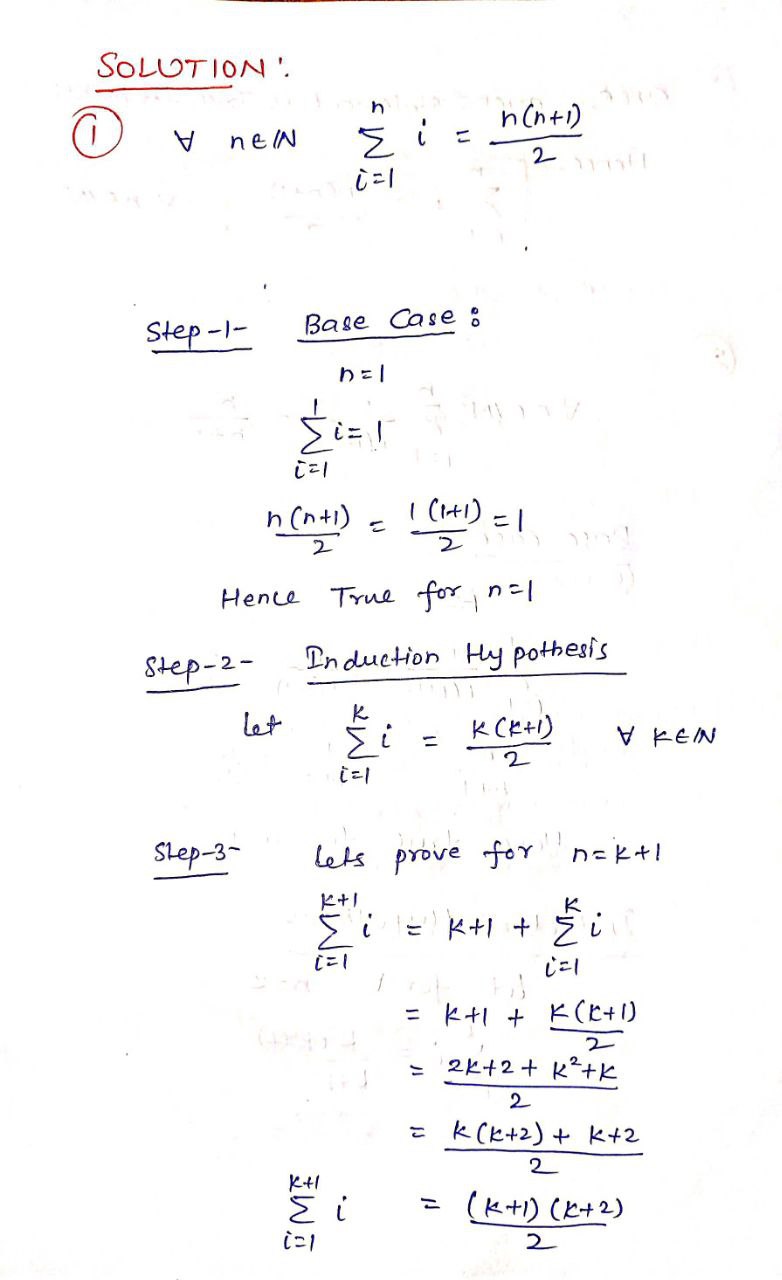 SOLUTION:
① ∀ n∈ℕ n Σ i=1 i = n(n+1)/2
Step-1- Base Case:
n=1
1 Σ i=1 i = 1
n(n+1)/2 = 1(1+1)/2 = 1
Hence True for n=1
Step-2- Induction Hypothesis
let K Σ i=1 i = K(K+1)/2 ∀ K∈ℕ
Step-3- Lets prove for n=K+1
K+1 Σ i=1 i = K+1 + K Σ i=1 i
= K+1 + K(K+1)/2
= 2K+2+K²+K/2
= K(K+2)+K+2/2
K+1 Σ i=1 i = (K+1)(K+2)/2